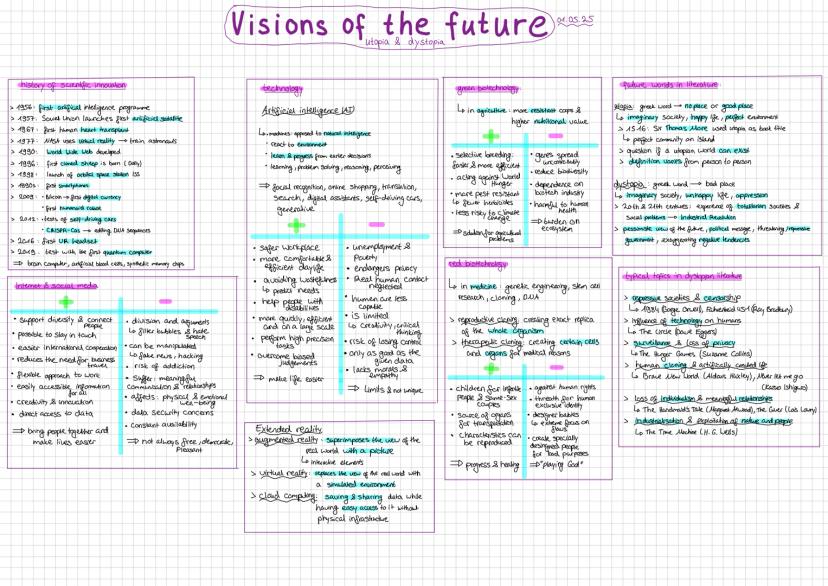 Visions of the future
01.05.25
utopia & dystopia
history of scientific innovation
> 1956: first artificial intelligence programme
> 1957: Soviet Union launches first artificial satellite
> 1967: first human heart transplant
> 1977: NASA uses virtual reality → train astronauts
> 1990: World Wide Web developed
> 1996: first cloned sheep is born (Dolly)
> 1998: launch of orbital space station ISS
> 1990s: first smartphones
> 2009: Bitcoin → first digital currency
> 2012: tests of self-driving cars
CRISPR-Cas → editing DNA sequences
> 2016: first VR headset
> 2019: test with the first quantum computer
⇒ brain computer, artificial blood cells, synthetic memory chips
internet & social media
+
-
• support diversity & connect
people
• possible to stay in touch
• easier international cooperation
• reduces the need for business
travel
• flexible approach to work
• easily accessible information
for all
• creativity & innovation
• direct access to data
⇒ bring people together and
make lives easier
• division and arguments
↳ filter bubbles & hate
speech
• can be manipulated
↳ fake news, hacking
• risk of addiction
• suffer: meaningful
communication & relationships
• affects: physical & emotional
well-being
• data security concerns
• constant availability
⇒ not always free, democratic,
pleasant
technology
Artificial intelligence (AI)
↳ machines opposed to natural intelligence
• react to environment
• learn & progress from earlier decisions
↳ learning, problem solving, reasoning, perceiving
⇒ facial recognition, online shopping, translation,
search, digital assistants, self-driving cars,
generative
+
-
• safer workplace
• more comfortable &
efficient daylife
• avoiding wastefulness
↳ predict needs
• help people with
disabilities
• more quickly, efficient
and on a large scale
• perform high precision
tasks
• overcome biased
judgements
⇒ make life easier
• unemployment &
poverty
• endangers privacy
• Real human contact
neglected
• humans are less
capable
• is limited
↳ creativity, critical
thinking
• risk of losing control
• only as good as the
given data
• lacks morals &
empathy
⇒ limits & not unique
Extended reality
> augmented reality: superimposes the view of the
real world with a picture
↳ interactive elements
> virtual reality: replaces the view of the real world with
a simulated environment
> cloud computing: saving & sharing data while
having easy access to it without
physical infrastructure
green biotechnology
↳ in agriculture: more resistant crops &
higher nutritional value
+
-
• selective breeding:
faster & more efficient
• acting against World
Hunger
• more pest resistant
↳ fewer herbicides
• less risky to climate
change
⇒ solution for agricultural
problems
• genes spread
uncontrollably
• reduce biodiversity
• dependence on
biotech industry
• harmful to human
health
⇒ burden on
ecosystem
red biotechnology
↳ in medicine: genetic engineering, stem cell
research, cloning, DNA
> reproductive cloning: creating exact replica
of the whole organism
> therapeutic cloning: creating certain cells
and organs for medical reasons
+
-
• children for infertile
people & same-sex
couples
• source of organs
for transplantation
• characteristics can
be reproduced
⇒ progress & healing
• against human rights
• threat for human
exclusive identity
• designer babies
↳ extreme focus on
flaws
• create specially
designed people
for bad purposes
⇒ "playing God"
future worlds in literature
utopia: greek word → no place or good place
↳ imaginary society, happy life, perfect environment
> 1516: Sir Thomas More used utopia as book title
↳ perfect community on island
> question if a utopian world can exist
↳ definition varies from person to person
dystopia: greek word → bad place
↳ imaginary society, unhappy life, oppression
> 20th & 21th centuries: experience of totalitarian societies &
social problems → Industrial Revolution
> pessimistic view of the future, political message, threatening, repressive
government, exaggerating negative tendencies
typical topics in dystopian literature
> oppressive societies & censorship
↳ 1984 (George Orwell), Fahrenheit 451 (Ray Bradbury)
> influence of technology on humans
↳ The Circle (Dave Eggers)
> surveillance & loss of privacy
↳ The Hunger Games (Suzanne Collins)
> human cloning & artificially created life
↳ Brave New World (Aldous Huxley), Never let me go
(Kazuo Ishiguro)
> loss of individualism & meaningful relationships
↳ The Handmaid's Tale (Margaret Atwood), The Giver (Lois Lowry)
> industrialisation & exploitation of nature and people
↳ The Time Machine (H. G. Wells)